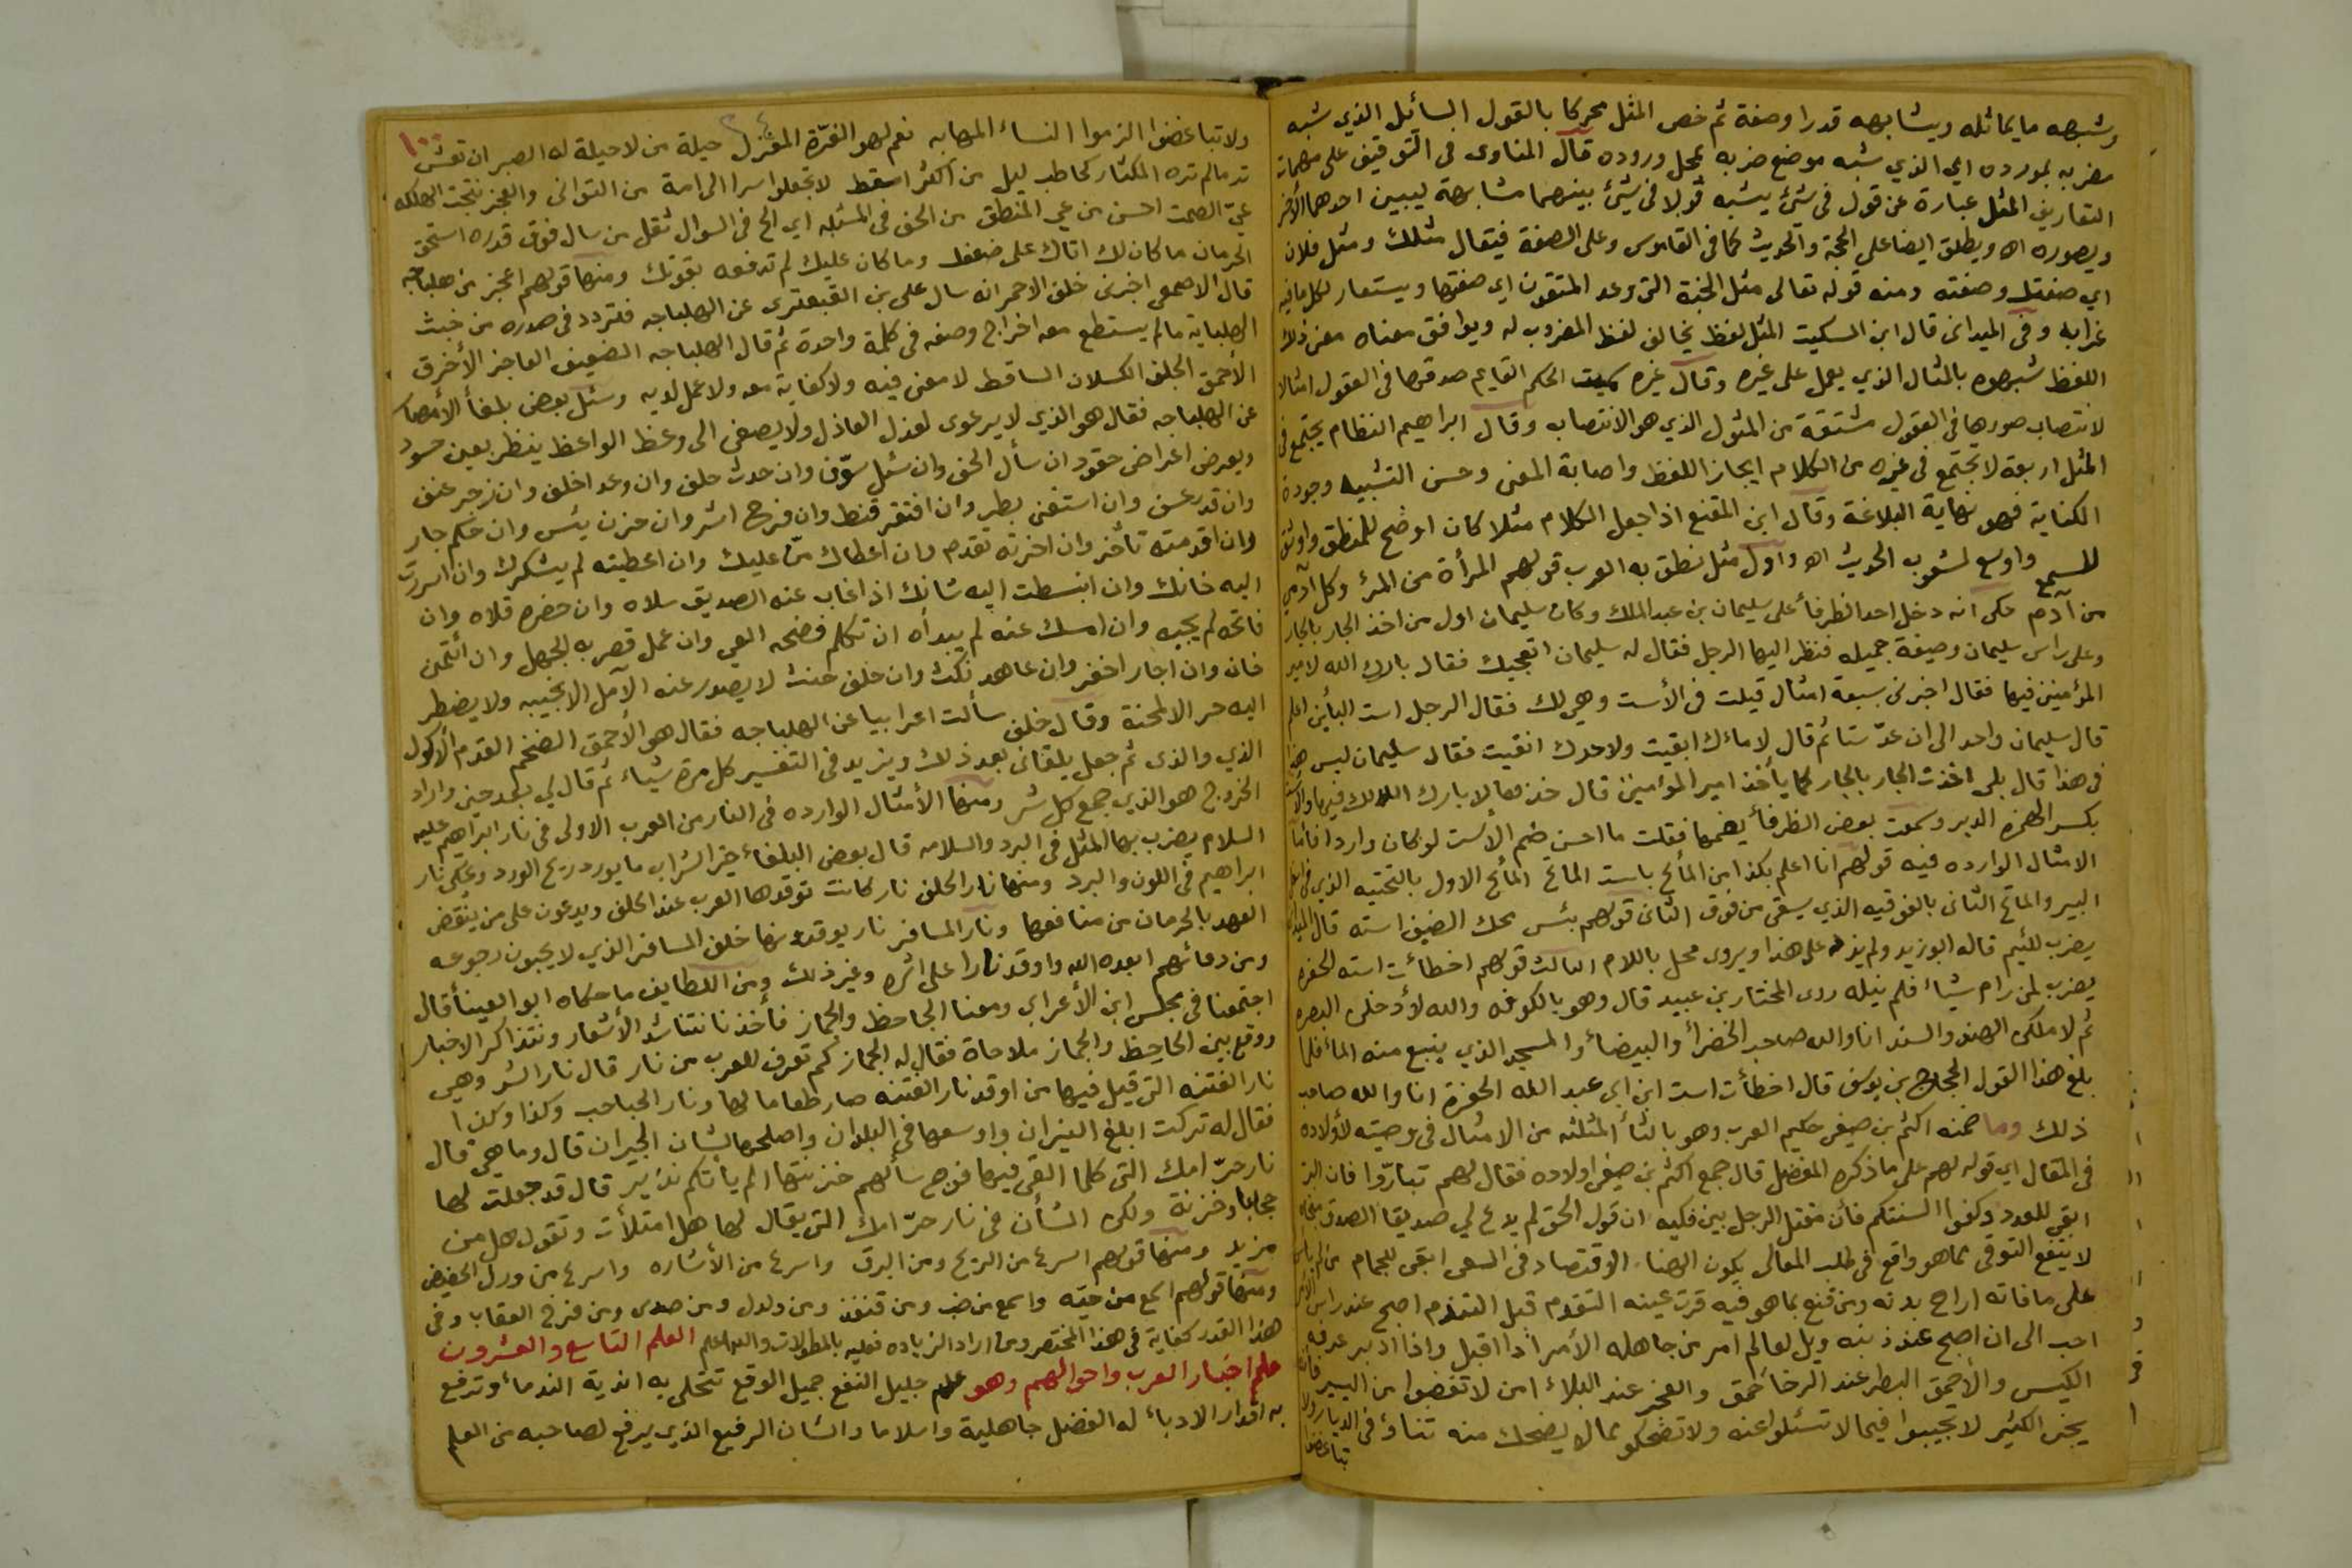 وشبهه مايماثله ويشابهه قدرا وصفة ثم خص المثل محركا بالقول السائل الذي شبه
مضربه بمورده اي الذي شبه موضع ضربه بمحل وروده قال المناوى في التوقيف على مهمات
التعاريف المثل عبارة عن قول في شئ يشبه قولا في شئ بينهما مشابهة ليبين احدهما الأخر
ويصوره اه ويطلق ايضا على الحجة والحديث كما في القاموس وعلى الصفة فيقال مثلك ومثل فلان
اي صفتك وصفته ومنه قوله تعالى مثل الجنة التى وعد المتقون اي صفتها ويستعار لكل مافيه
غرابه وفي الميدانى قال ابن السكيت المثل لفظ يخالف لفظ المضروب له ويوافق معناه معنى ذلك
اللفظ شبهوه بالمثال الذي يعمل على غيره وقال غيره سميت الحكم القايم صدقها في العقول امثالا
لانتصاب صورها في العقول مشتقة من المثول الذي هو الانتصاب وقال ابراهيم النظام يجتمع في
المثل اربعة لا تجتمع في غيره من الكلام ايجاز اللفظ واصابة المعنى وحسن التشبيه وجودة
الكناية فهو نهاية البلاغة وقال ابن المقنع اذا جعل الكلام مثلا كان اوضح للمنطق وأوثق
للسمع واوسع لشعوب الحديث اه واول مثل نطق به العرب قولهم المرأة من المرء وكل آدمي
من آدم حكى انه دخل احد الظرفأ على سليمان بن عبد الملك وكان سليمان اول من اخذ الجار بالجار
وعلى راس سليمان وصيفة جميله فنظر اليها الرجل فقال له سليمان اتعجبك فقال بارك الله لامير
المؤمنين فيها فقال اخبرنى سبعة امثال قيلت في الأست وهي لك فقال الرجل است البأين اعلم
قال سليمان واحد الى ان عدّ ستا ثم قال لا ماءك ابقيت ولا حرك انقيت فقال سليمان ليس هذا
في هذا قال بلى اخذت الجار بالجار كما يأخذ امير المؤمنين قال خذها لا بارك الله لك فيها والاست
بكسر الهمزه الدبر وسمعت بعض الظرفأ يضمها فقلت ما احسن ضم الأست لو كان واردا فاما
الامثال الوارده فيه قولهم انا اعلم بكذا من المأيح باست الماتح المأيح الاول بالتحتيه الذي في اسفل
البير والماتح الثانى بالفوقيه الذي يسقى من فوق الثانى قولهم بئس محك الضيف استه قال الميدانى
يضرب للئيم قاله ابو زيد ولم يزد على هذا ويروى محل باللام الثالث قولهم اخطأت استه الحفره
يضرب لمن رام شياء فلم ينيله روى المختار بن عبيد قال وهو بالكوفه والله لأدخلن البصره
ثم لاملكن الهند والسند انا والله صاحب الخضرأ والبيضأ والمسجد الذي ينبع منه المأ فلما
بلغ هذا القول الحجاج بن يوسف قال اخطأت است ابن ابي عبد الله الحفرة انا والله صاحب
ذلك وما ضمنه اكثم بن صيفى حكيم العرب وهو بالثأ المثلثه من الامثال في وصيته لأولاده
في المقال اي قوله لهم على ما ذكره المفضل قال جمع اكثم بن صيفى اولاده فقال لهم تبارّوا فان البر
ابقى للعدد وكفوا السنتكم فان مقتل الرجل بين فكيه ان قول الحق لم يدع لي صديقا الصدق منجاه
لا ينفع التوقى مما هو واقع في طلب المعالى يكون الهنا الاقتصاد في السعى ابقى للجمام من لم ياس
على ما فاته اراح بدنه ومن قنع بما هو فيه قرت عينه التقدم قبل التندم اصبح عند راس الأمر
احب الى ان اصبح عند ذنبه ويل لعالم امر من جاهله الأمر اذا اقبل واذا ادبر عرفه
الكيس والأحمق البطر عند الرخأ حمق والعجز عند البلاء امن لا تغضبوا من اليسير فانه
يجنى الكثير لا تجيبوا فيما لا تسئلوا عنه ولا تضحكو مما لا يضحك منه تناؤ في الديار ولا
تباغضوا
ولا تباغضوا الزموا النساء المهابه نعم لهو الغرّة المغزل حيلة من لا حيلة له الصبر ان تعش
تر مالم تره المكثار كحاطب ليل من أكثر اسقط لا تجعلوا سرا الى امة من التوانى والعجز نتجت الهلكه
عيّ الصمت احسن من عي المنطق من الحق في المسئله اي الح في السوال ثقل من سال فوق قدره استحق
الحرمان ما كان لك اتاك على ضعفك وما كان عليك لم تدفعه بقوتك ومنها قولهم اعجز من هلباجه
قال الاصمعى اخبرنى خلف الاحمر انه سال على بن القبعثرى عن الهلباجه فتردد في صدره من خبث
الهلباية مالم يستطع معه اخراج وصفه في كلمة واحدة ثم قال الهلباجه الضعيف العاجز الأخرق
الأحمق الجلف الكسلان الساقط لا معنى فيه ولا كفاية معه ولا عمل لديه وسئل بعض بلغأ الأمصار
عن الهلباجه فقال هو الذي لا يرعوى لعذل العاذل ولا يصغى الى وعظ الواعظ ينظر بعين حسود
ويعرض اعراض حقود ان سأل الحف وان سئل سوّف وان حدث حلف وان وعد اخلف وان زجر عنف
وان قدر عسف وان استغنى بطر وان افتقر قنط وان فرح اشر وان حزن يئس وان حكم جار
وان اقدمته تأخر وان اخرته تقدم وان اعطاك منّ عليك وان اعطيته لم يشكرك وان اسررت
اليه خانك وان انبسطت اليه شانك اذا غاب عنه الصديق سلاه وان حضره قلاه وان
فاتحه لم يجيبه وان امسك عنه لم يبدأه ان تكلم فضحه العي وان عمل قصر به الجهل وان أئتمن
خان وان اجار اخفر وان عاهد نكث وان حلف حنث لا يصدر عنه الآمل الا بخيبه ولا يضطر
اليه حر الا لمحنة وقال خلف سألت اعرابيا عن الهلباجه فقال هو الأحمق الضخم القدم الأكول
الذي والذى ثم جعل يلقانى بعد ذلك ويزيد في التفسير كل مرة شياء ثم قال لي بعد حين واراد
الخروج هو الذي جمع كل شر ومنها الأمثال الوارده في النار من العرب الاولى في نار ابراهيم عليه
السلام يضرب بها المثل في البرد والسلامه قال بعض البلغاء خير الشراب ما يورد ريح الورد ويحكى نار
ابراهيم في اللون والبرد ومنها نار الحلف نار كانت توقدها العرب عند الحلف ويدعون على من ينقض
العهد بالحرمان من منافعها ونار المسافر نار يوقدونها خلف المسافر الذي لا يحبون رجوعه
ومن دعائهم ابعده الله واوقد نارا على اثره وغير ذلك ومن اللطايف ما حكاه ابو العينأ قال
اجتمعنا في مجلس ابن الأعرابي ومعنا الجاحظ والجماز فأخذنا نتناشد الأشعار ونتذاكر الاخبار
ووقع بين الجاحظ والجماز ملاحاة فقال له الجماز كم تعرف للعرب من نار قال نار الشر وهي
نار الفتنه التى قيل فيها من اوقد نار الفتنه صار طعاما لها ونار الحباحب وكذا وكذا
فقال له تركت ابلغ النيران واوسعها في البلدان واصلحها لشان الجيران قال وما هي قال
نار حرّ امك التى كلما القى فيها فوج سألهم خزنتها الم يأتكم نذير قال قد جعلت لها
حجابا وخزنة ولكن الشأن في نار حرّ امك التى يقال لها هل امتلأت وتقول هل من
مزيد ومنها قولهم اسرع من الريح ومن البرق واسرع من الأشاره واسرع من ورل الحضيض
ومنها قولهم اسمع من حيّه واسمع من ضب ومن قنفذ ومن دلدل ومن صدى ومن فرخ العقاب وفي
هذا القدر كفاية في هذا المختصر ومن اراد الزياده فعليه بالمطولات والله اعلم العلم التاسع والعشرون
علم اخبار العرب واحوالهم وهو علم جليل النفع جميل الوقع تتحلى به اندية الندماء وترفع
به اقدار الادباء له الفضل جاهلية واسلاما والشان الرفيع الذي يرفع لصاحبه من العلم